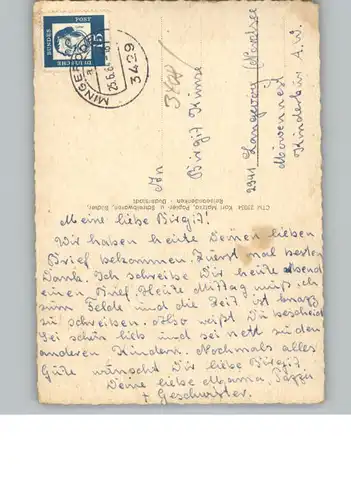 DEUTSCHE
BUNDES
POST
15
MINGERODE
3429
An
Birgit Kunze
2941 Langeoog / Nordsee
Möwennest
Kinderkur A.W.
Karl Mainzer, Papier- u. Schreibwaren, Bücher,
Reiseandenken - Duderstadt
Meine liebe Birgit!
Wir haben heute Deinen lieben
Brief bekommen. Zuerst mal besten
Dank. Ich schreibe Dir heute Abend
einen Brief. Heute Mittag muß ich
zum Felde und die Zeit ist knapp
zu schreiben. Also weißt Du bescheid
Sei schön lieb und sei nett zu den
anderen Kindern. Nochmals alles
Gute wünscht Dir liebe Birgit.
Deine liebe Mama, Pappa
+ Geschwister.